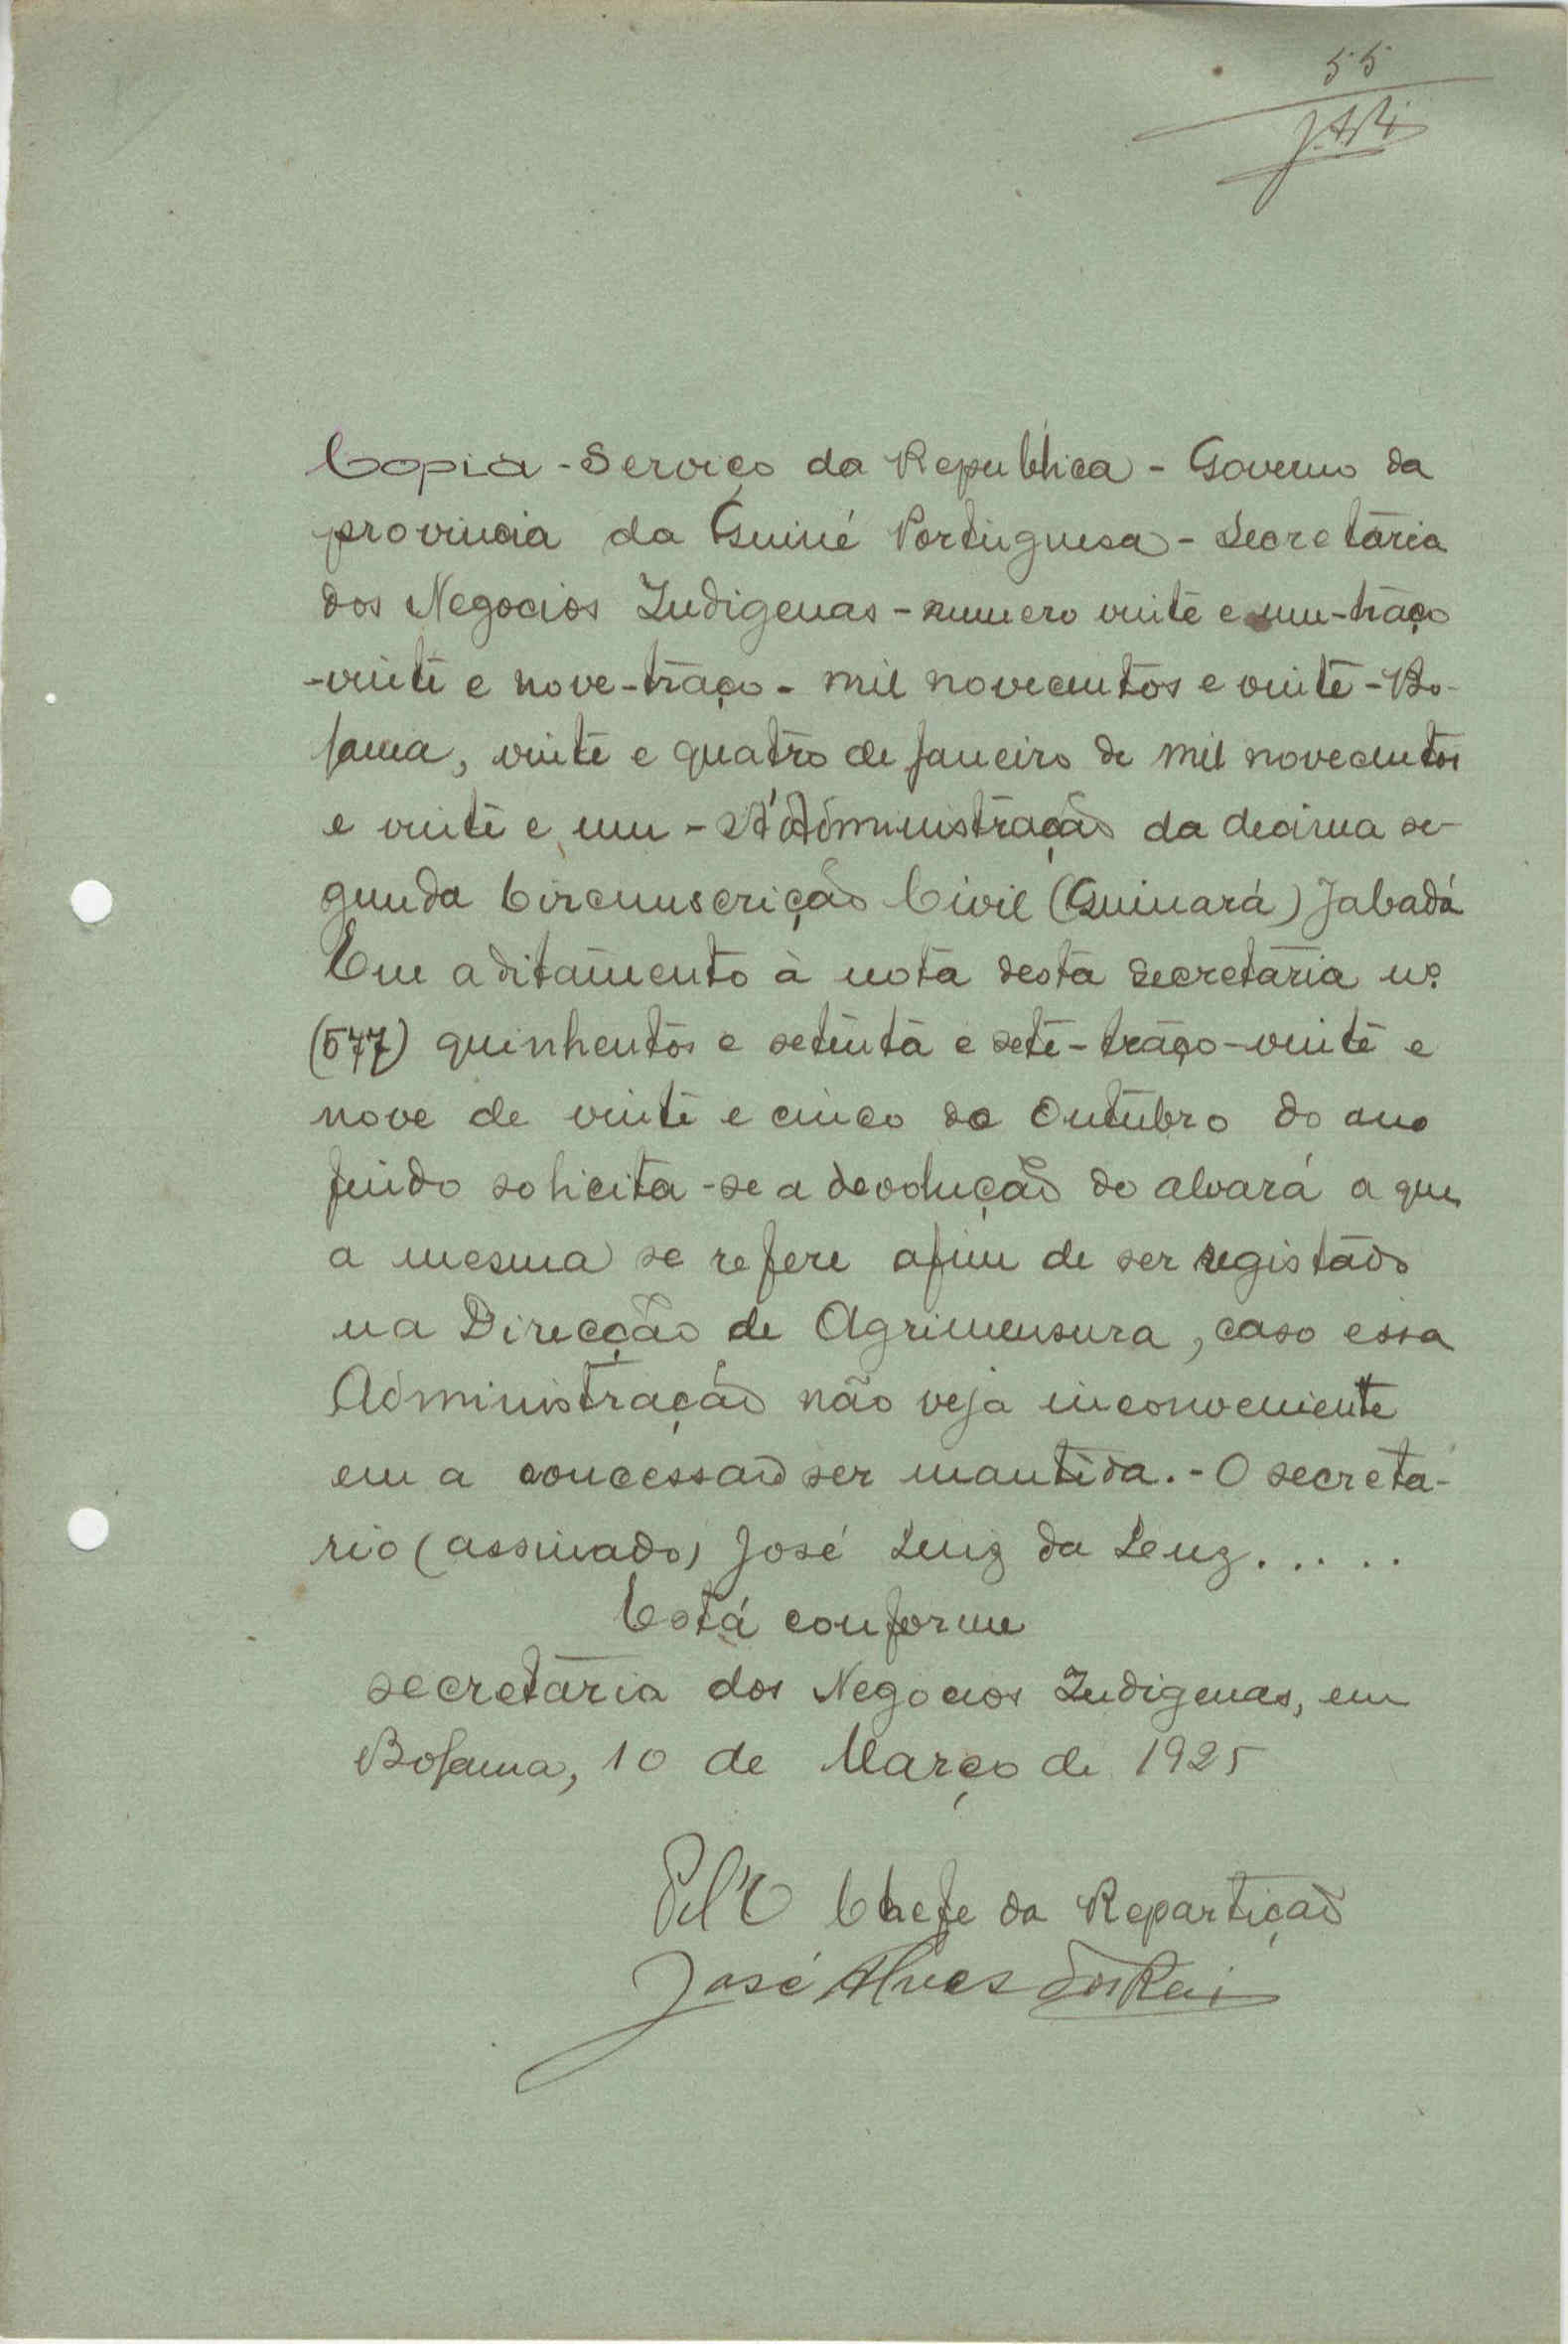 55
Copia - Serviço da Republica - Governo da
provincia da Guiné Portuguesa - Secretaria
dos Negocios Indigenas - numero vinte e um - traço
- vinte e nove - traço - mil novecentos e vinte - Bo-
lama, vinte e quatro de Janeiro de mil novecentos
e vinte e um - Á Administração da decima se-
gunda Circunscrição Civil (Quinará) Jabadá
Em aditamento à nota desta secretaria nº
(577) quinhentos e setenta e sete - traço - vinte e
nove de vinte e cinco de Outubro do ano
findo solicita-se a devolução do alvará a que
a mesma se refere afim de ser registado
na Direcção de Agrimensura, caso essa
Administração não veja inconveniente
em a concessão ser mantida. - O secretá-
rio (assinado) José Luiz da Luz.....
Está conforme
Secretaria dos Negocios Indigenas, em
Bolama, 10 de Março de 1925
Pel'O Chefe da Repartição
José Alves dos Reis